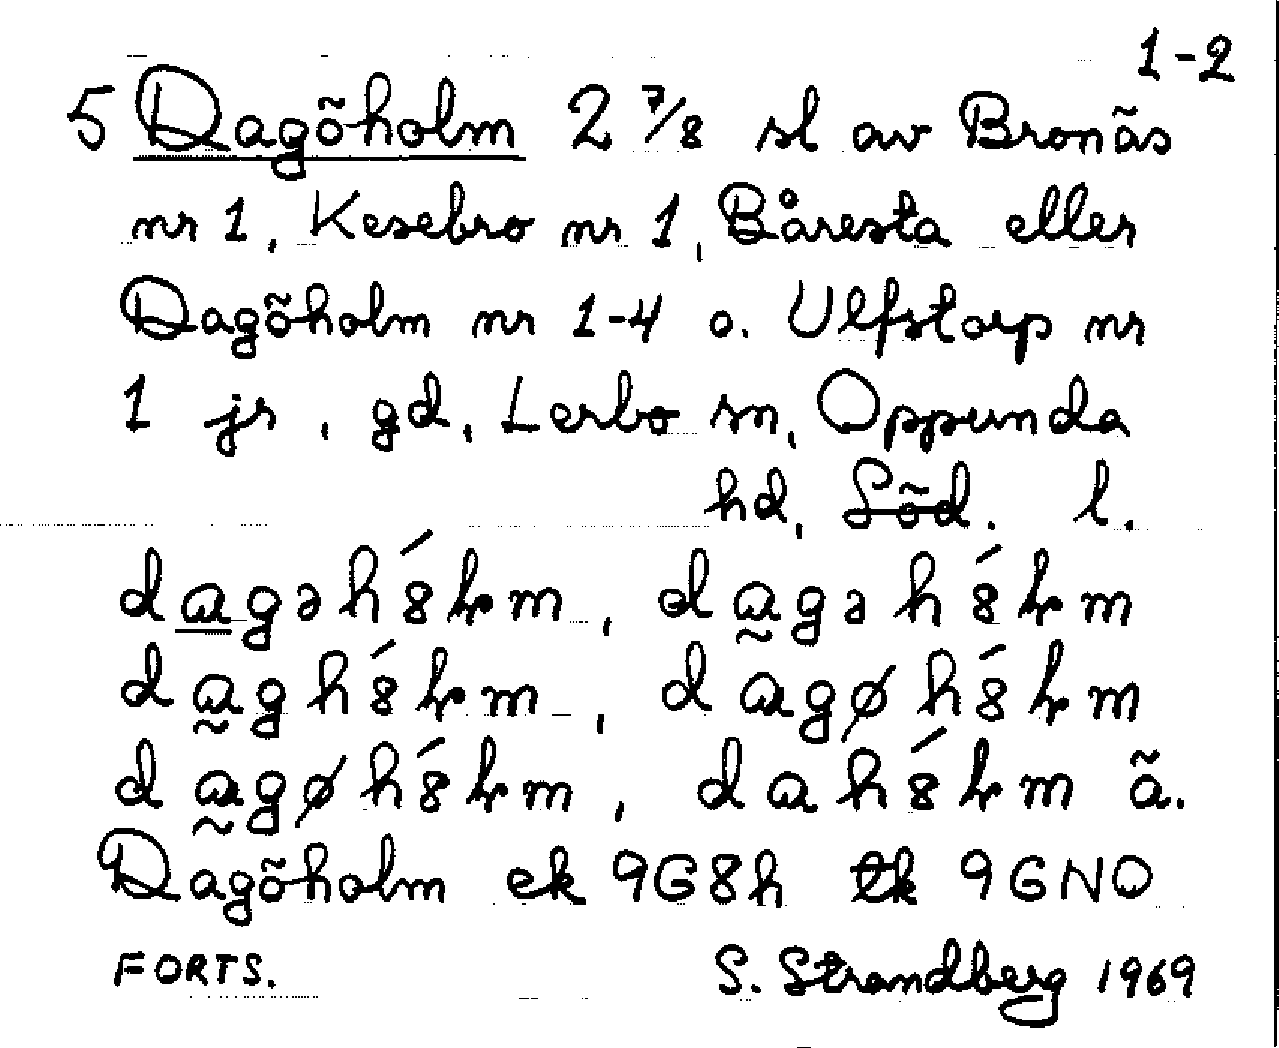 1-2
5 Dagöholm 2 7/8 sl av Bronäs
nr 1, Kesebro nr 1, Båresta eller
Dagöholm nr 1-4 o. Ulfstorp nr
1 jr, gd, Lerbo sn, Oppunda
hd, Söd. l.
dagəhóhm, dagəhóhm
daghóhm, dagøhóhm
dagøhóhm, dahóhm ä.
Dagöholm ek 9G8h tk 9GNO
FORTS. S. Strandberg 1969